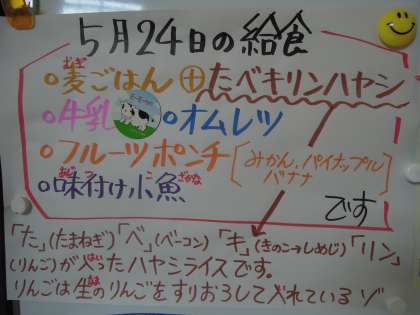 5月24日の給食
○麦ごはん⊕たべキリンハヤシ
むぎ
○牛乳 ○オムレツ
○フルーツポンチ[みかん、パイナップル
バナナ]
○味付け小魚
あじつ こ ざかな
です
「た」(たまねぎ)「べ」(ベーコン)「キ」(きのこ→しめじ)「リン」
(りんご)が入ったハヤシライスです。
はい
りんごは生のりんごをすりおろして入れているゾ
なま